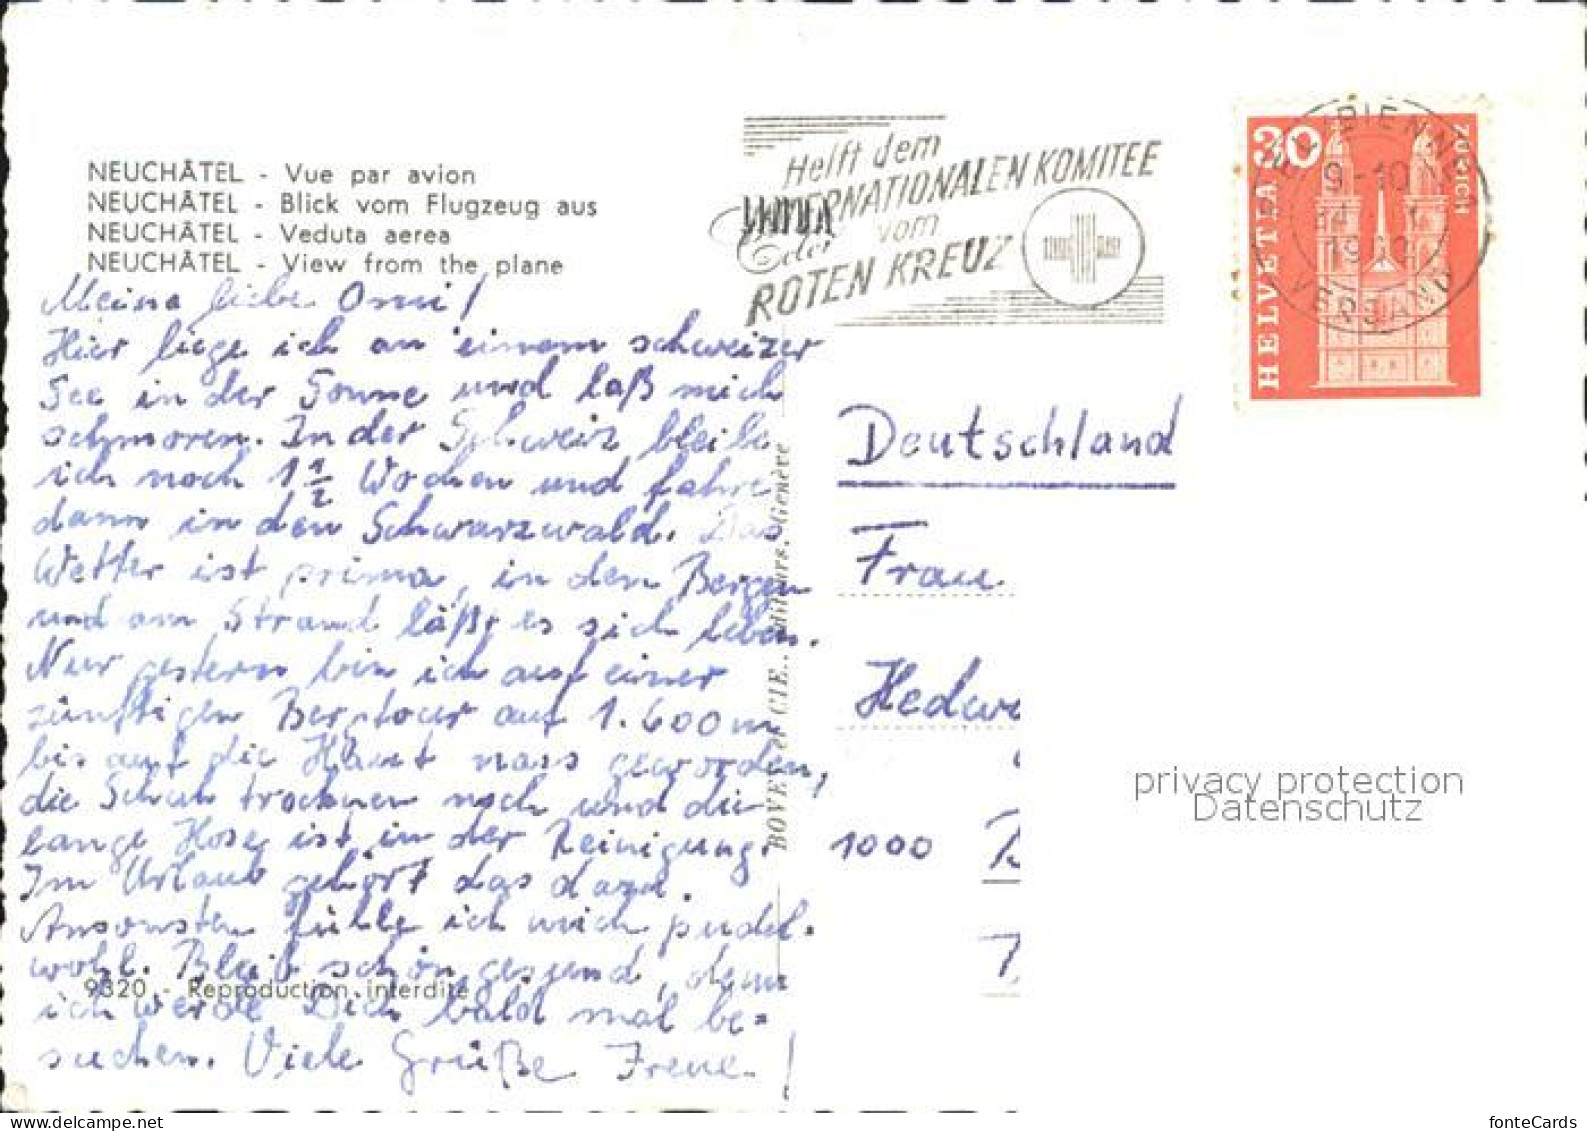 NEUCHÂTEL - Vue par avion
NEUCHÂTEL - Blick vom Flugzeug aus
NEUCHÂTEL - Veduta aerea
NEUCHÂTEL - View from the plane
Meine liebe Omi!
Hier liege ich an einem schweizer
See in der Sonne und laß mich
schmoren. In der Schweiz bleibe
ich noch 1 1/2 Wochen und fahre
dann in den Schwarzwald. Das
Wetter ist prima, in den Bergen
und am Strand läßt es sich leben.
Nur gestern bin ich auf einer
zünftigen Bergtour auf 1.600 m
bis auf die Haut nass geworden,
die Schuh trocknen noch und die
lange Hose ist in der Reinigung.
Im Urlaub gehört das dazu.
Ansonsten fühle ich mich pudel-
wohl. Bleib schön gesund, denn
ich werde Dich bald mal be=
suchen. Viele Grüße Irene!
9320 - Reproduction interdite
BOVET et CIE., Editeurs, Genève
Helft dem
INTERNATIONALEN KOMITEE
vom
ROTEN KREUZ
HELVETIA 30
ZÜRICH
BIENNE
9-10
VERSAND
Deutschland
Frau
Hedw
1000
privacy protection
Datenschutz
fonteCards